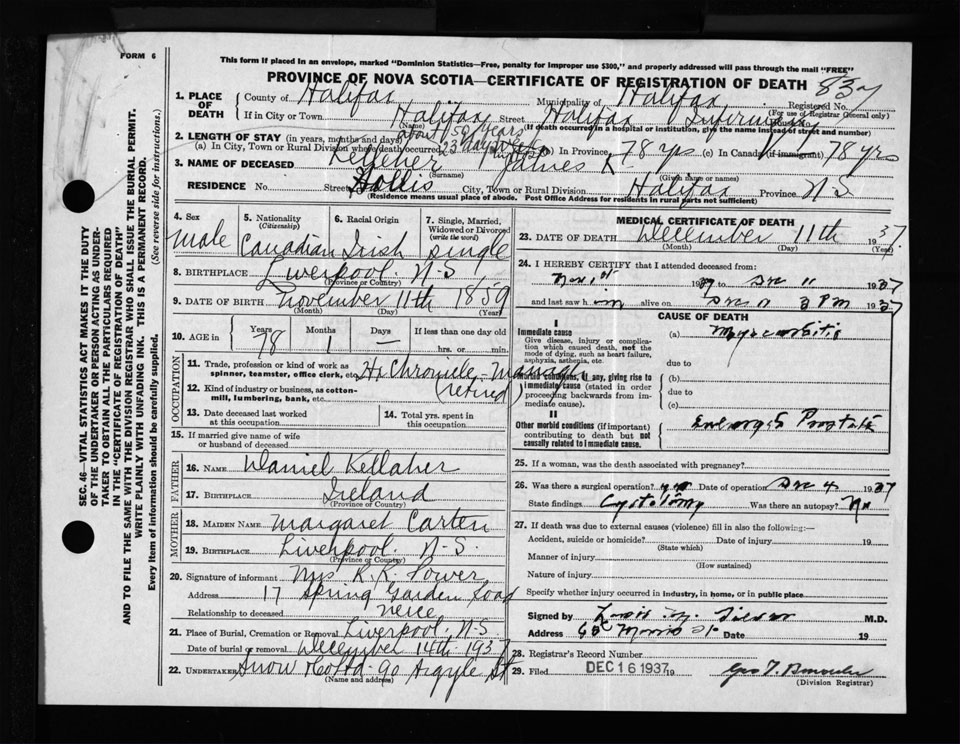 FORM 6
This form if placed in an envelope, marked "Dominion Statistics—Free, penalty for improper use $300," and properly addressed will pass through the mail "FREE"
PROVINCE OF NOVA SCOTIA—CERTIFICATE OF REGISTRATION OF DEATH 837
1. PLACE OF DEATH County of Halifax Municipality of Halifax Registered No.
(For use of Registrar General only)
If in City or Town Halifax Street Halifax Infirmary House No.
(Name) (If death occurred in a hospital or institution, give the name instead of street and number)
2. LENGTH OF STAY (in years, months and days) about 50 years
(a) In City, Town or Rural Division where death occurred 23 days (b) In Province 78 yrs (c) In Canada (if immigrant) 78 yrs
3. NAME OF DECEASED Kelleher James K
(Surname) (Given name or names)
RESIDENCE No. Street Hollis City, Town or Rural Division Halifax Province N S
(Residence means usual place of abode. Post Office Address for residents in rural parts not sufficient)
4. Sex male
5. Nationality (Citizenship) Canadian
6. Racial Origin Irish
7. Single, Married, Widowed or Divorced (write the word) single
8. BIRTHPLACE Liverpool. N.S.
(Province or Country)
9. DATE OF BIRTH November 11th 1859
(Month) (Day) (Year)
10. AGE in Years 78 Months 1 Days — If less than one day old hrs. or min.
OCCUPATION
11. Trade, profession or kind of work as spinner, teamster, office clerk, etc. Hx Chronicle - Manager
12. Kind of industry or business, as cotton-mill, lumbering, bank, etc. (retired)
13. Date deceased last worked at this occupation
14. Total yrs. spent in this occupation
15. If married give name of wife or husband of deceased
FATHER
16. NAME Daniel Kellaher
17. BIRTHPLACE Ireland
(Province or Country)
MOTHER
18. MAIDEN NAME Margaret Carten
19. BIRTHPLACE Liverpool. N.S.
(Province or Country)
20. Signature of informant Mrs R. K. Power
Address 17 Spring Garden Road
Relationship to deceased neice
21. Place of Burial, Cremation or Removal Liverpool, N.S
Date of burial or removal December 14th 1937
22. UNDERTAKER Snow & Co Ltd - 90 Argyle St
(Name and address)
MEDICAL CERTIFICATE OF DEATH
23. DATE OF DEATH December 11th 1937.
(Month) (Day) (Year)
24. I HEREBY CERTIFY that I attended deceased from:
Nov 1st 1937 to Dec 11 1937
and last saw him alive on Dec 11 3 PM 1937
CAUSE OF DEATH
I
Immediate cause
Give disease, injury or complication which caused death, not the mode of dying, such as heart failure, asphyxia, asthenia, etc.
(a) Myocarditis
due to
Morbid conditions, if any, giving rise to immediate cause (stated in order proceeding backwards from immediate cause).
(b)
due to
(c)
II
Other morbid conditions (if important) contributing to death but not causally related to immediate cause.
Enlarged Prostate
25. If a woman, was the death associated with pregnancy?
26. Was there a surgical operation? yes Date of operation Dec 4 1937
State findings Cystotomy Was there an autopsy? No
27. If death was due to external causes (violence) fill in also the following:—
Accident, suicide or homicide? Date of injury 19
(State which)
Manner of injury
(How sustained)
Nature of injury
Specify whether injury occurred in industry, in home, or in public place
Signed by M.D.
Address Morris St Date 19
28. Registrar's Record Number
29. Filed DEC 16 1937
(Division Registrar)
SEC. 46—VITAL STATISTICS ACT MAKES IT THE DUTY
OF THE UNDERTAKER OR PERSON ACTING AS UNDER-
TAKER TO OBTAIN ALL THE PARTICULARS REQUIRED
IN THE "CERTIFICATE OF REGISTRATION OF DEATH"
AND TO FILE THE SAME WITH THE DIVISION REGISTRAR WHO SHALL ISSUE THE BURIAL PERMIT.
WRITE PLAINLY WITH UNFADING INK. THIS IS A PERMANENT RECORD.
Every item of information should be carefully supplied. (See reverse side for instructions.)